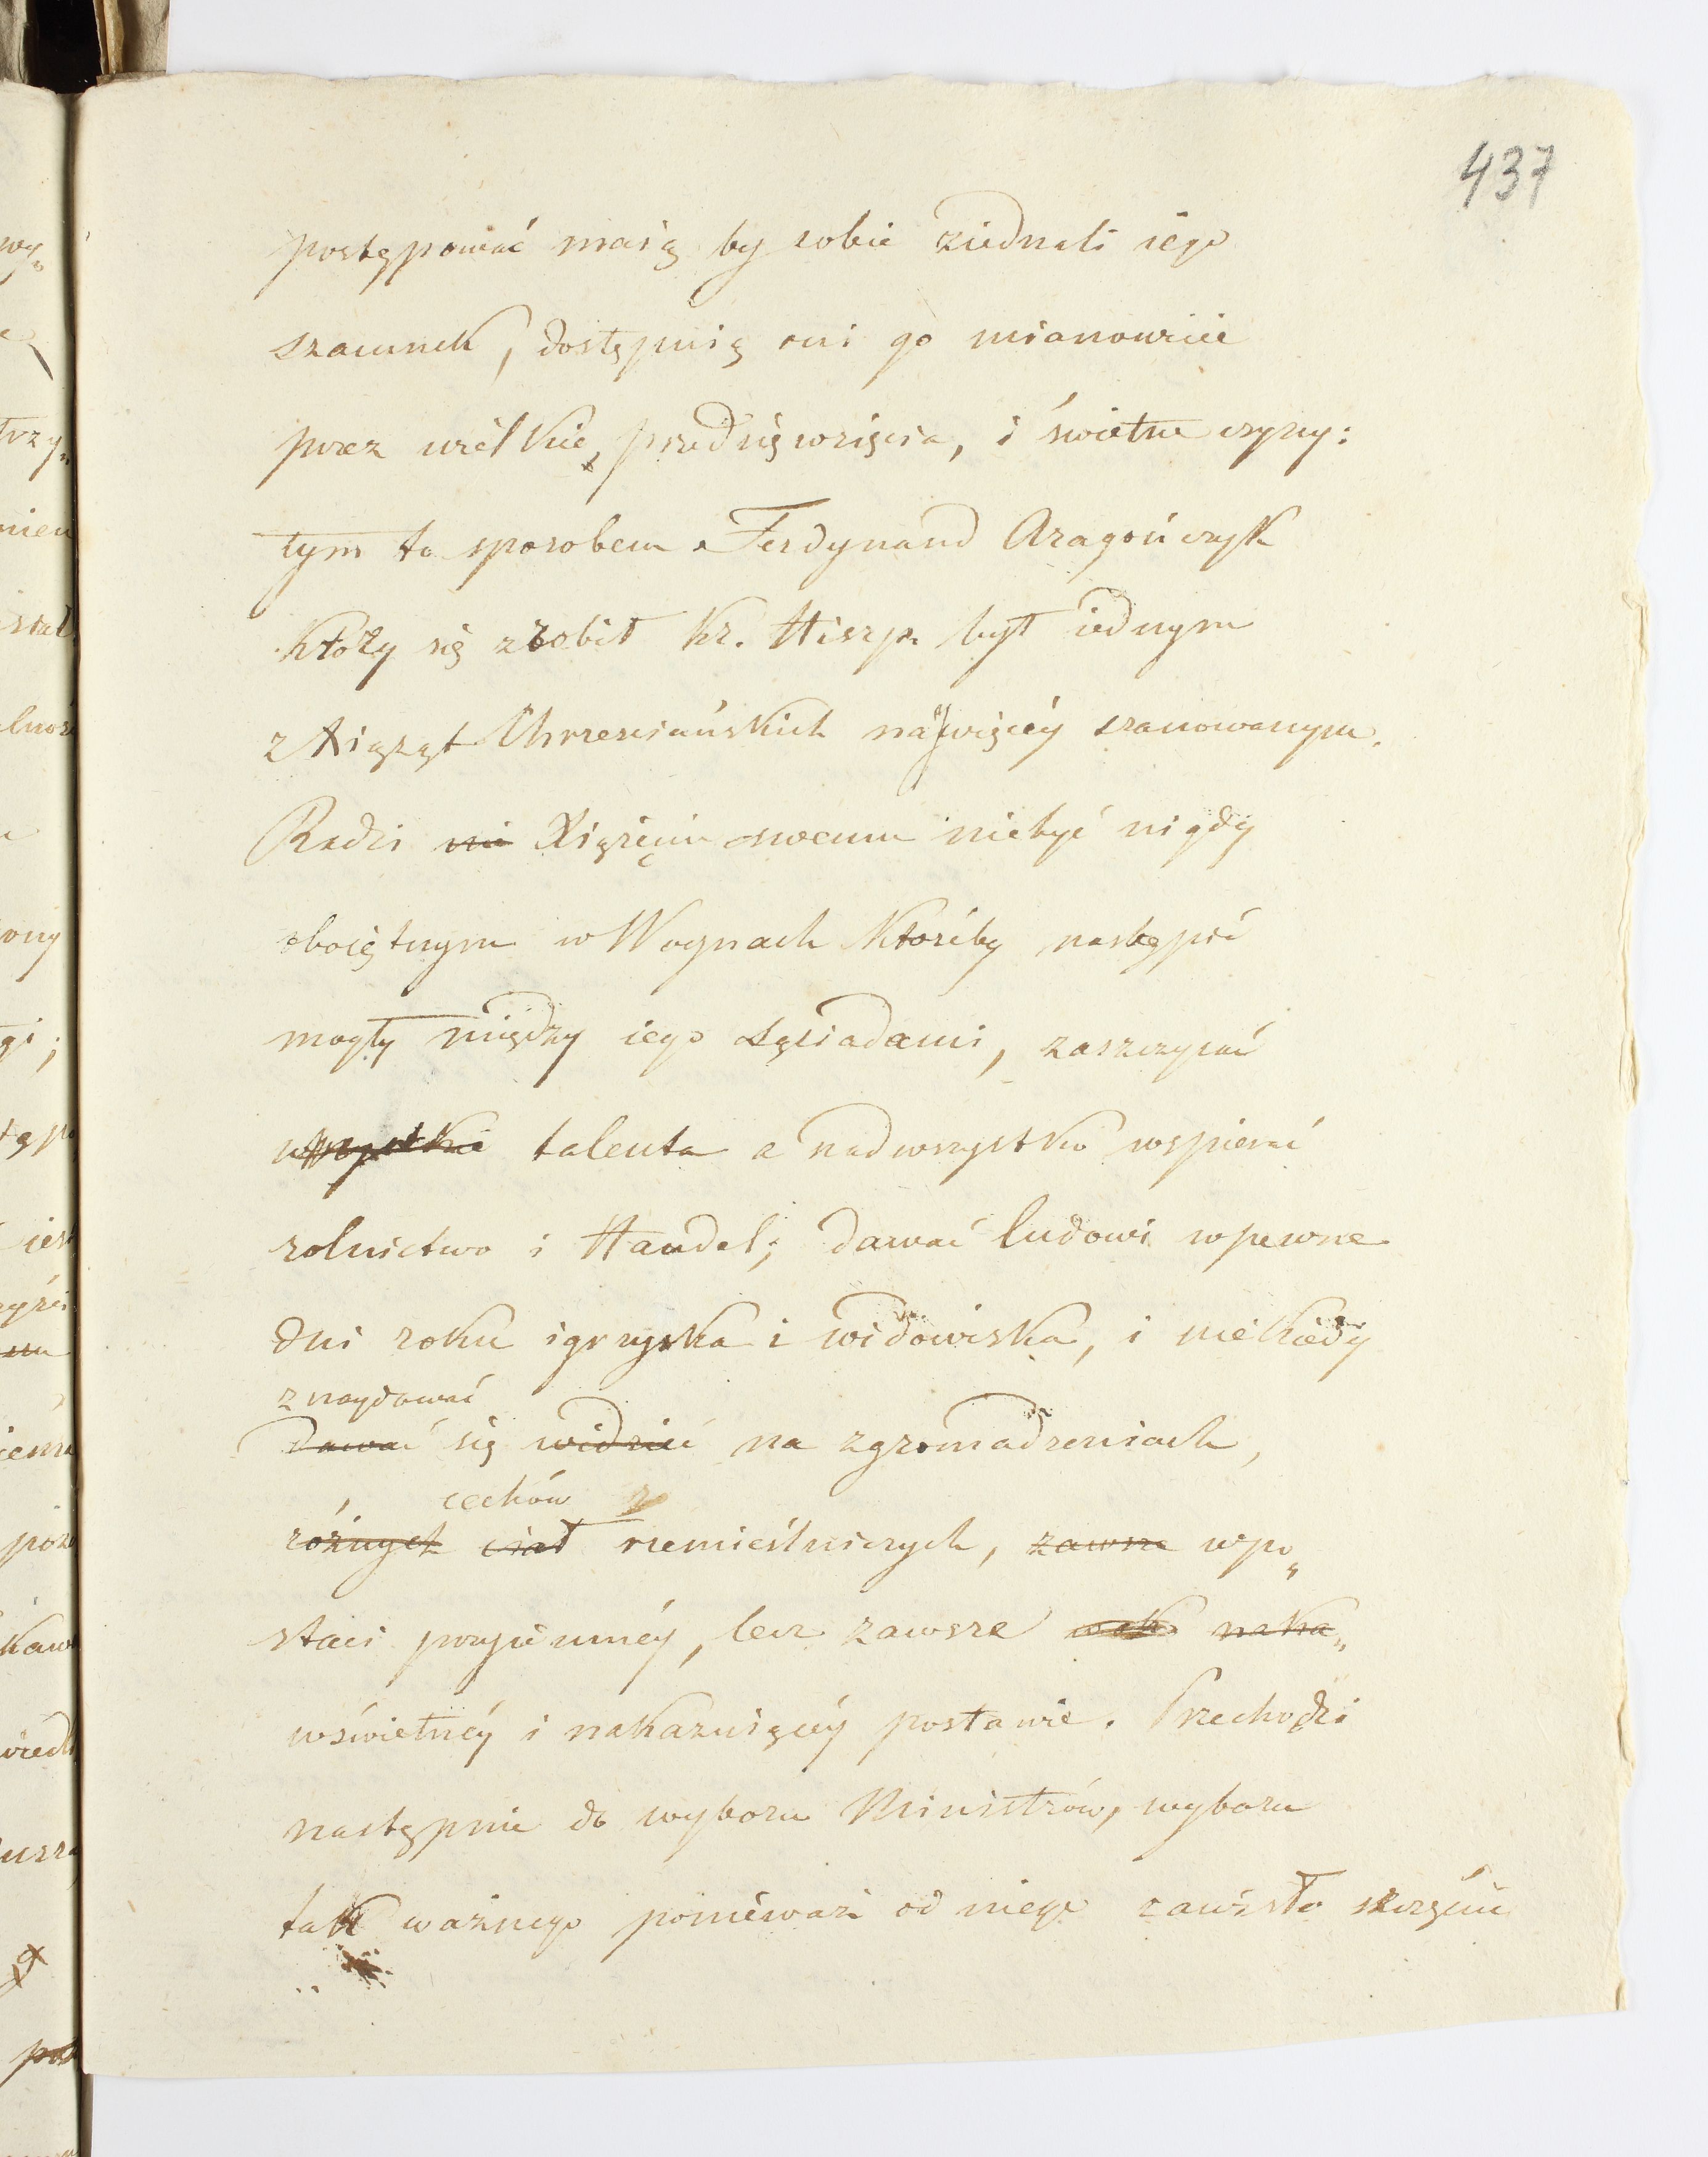 437
postępować maią by sobie ziednali iego
szacunek, dostąpnią oni go mianowicie
przez wielkie przedsięwzięcia, i świetne czyny:
tym to sposobem Ferdynand Aragończyk
który się zrobił kr. Hiszp. był iednym
z Xiążąt Chrześciańskich naywięcéy szanowanym.
Radzi ni Xięciu swemu niebyć nigdy
oboiętnym w Woynach któreby nastąpić
mogły między iego sąsiadami, zaszczycać
wszystkie talenta a nadwszystko wspierać
rolnictwo i Handel; dawać ludowi wpewne
dni roku igrzyska i widowiska, i niekiedy
znaydować
dawać się widzieć na zgromadzeniach,
cechów
różnych ciał rzemieślniczych, zawsze wpo„
staci przyiemnéy, lecz zawsze naka„
wświetnéy i nakazuiącéy postawie. Przechodzi
następnie do wyboru Ministrów, wyboru
tak ważnego ponieważ od niego zawisło szczęście